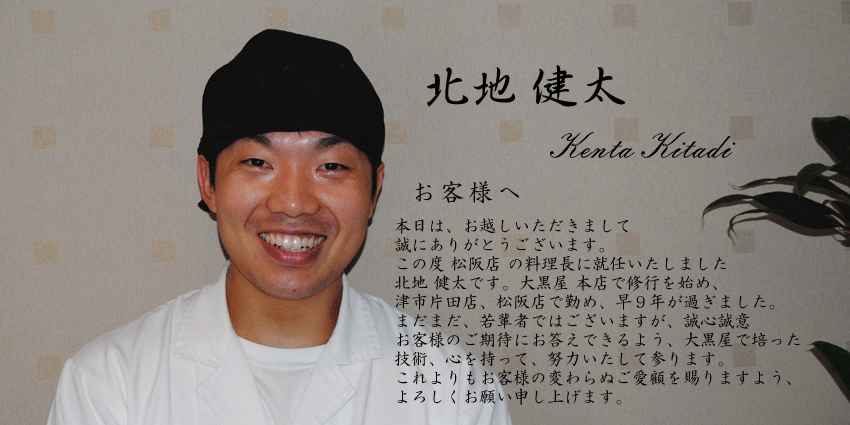 北地 健太
Kenta Kitadi
お客様へ
本日は、お越しいただきまして
誠にありがとうございます。
この度 松阪店 の料理長に就任いたしました
北地 健太です。大黒屋 本店で修行を始め、
津市片田店、松阪店で勤め、早９年が過ぎました。
まだまだ、若輩者ではございますが、誠心誠意
お客様のご期待にお答えできるよう、大黒屋で培った
技術、心を持って、努力いたして参ります。
これよりもお客様の変わらぬご愛顧を賜りますよう、
よろしくお願い申し上げます。